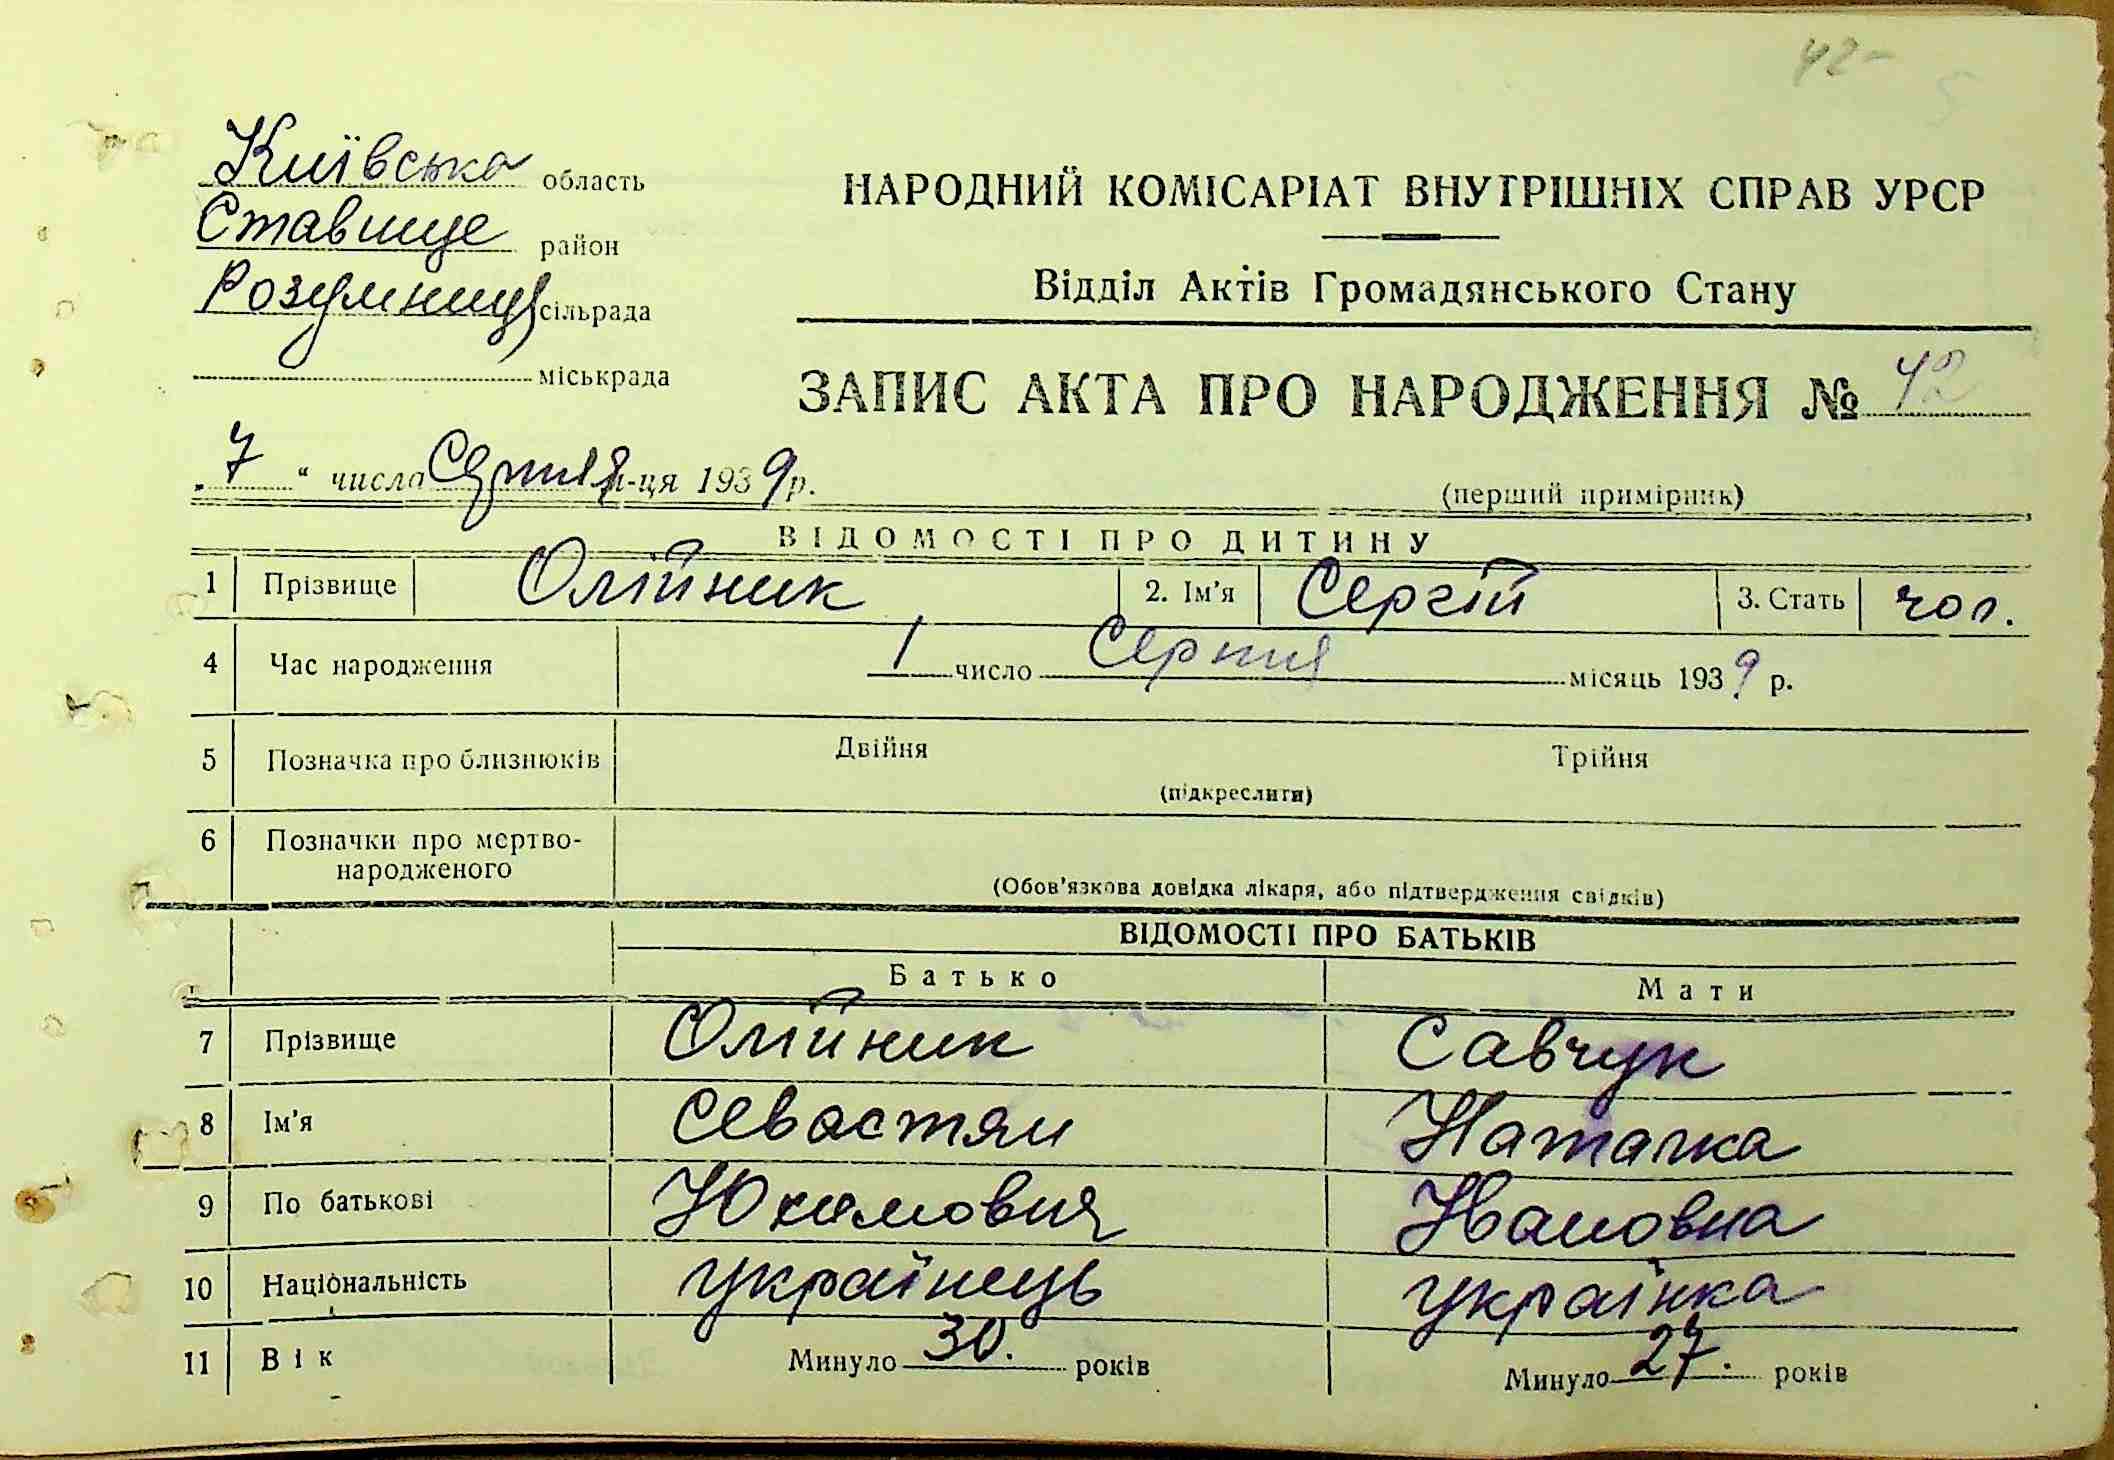 42-
Київська область
Ставище район
Розумниця сільрада
міськрада
НАРОДНИЙ КОМІСАРІАТ ВНУТРІШНІХ СПРАВ УРСР
Відділ Актів Громадянського Стану
ЗАПИС АКТА ПРО НАРОДЖЕННЯ № 42
„7“ числа Серпня м-ця 1939 р.
(перший примірник)
ВІДОМОСТІ ПРО ДИТИНУ
1 Прізвище Олійник 2. Ім'я Сергій 3. Стать чол.
4 Час народження 1 число Серпня місяць 1939 р.
5 Позначка про близнюків Двійня Трійня
(підкреслити)
6 Позначки про мертво-
народженого
(Обов'язкова довідка лікаря, або підтвердження свідків)
ВІДОМОСТІ ПРО БАТЬКІВ
Батько Мати
7 Прізвище Олійник Савчук
8 Ім'я Севастян Наталка
9 По батькові Юхимович Івановна
10 Національність українець українка
11 Вік Минуло 30. років Минуло 27. років